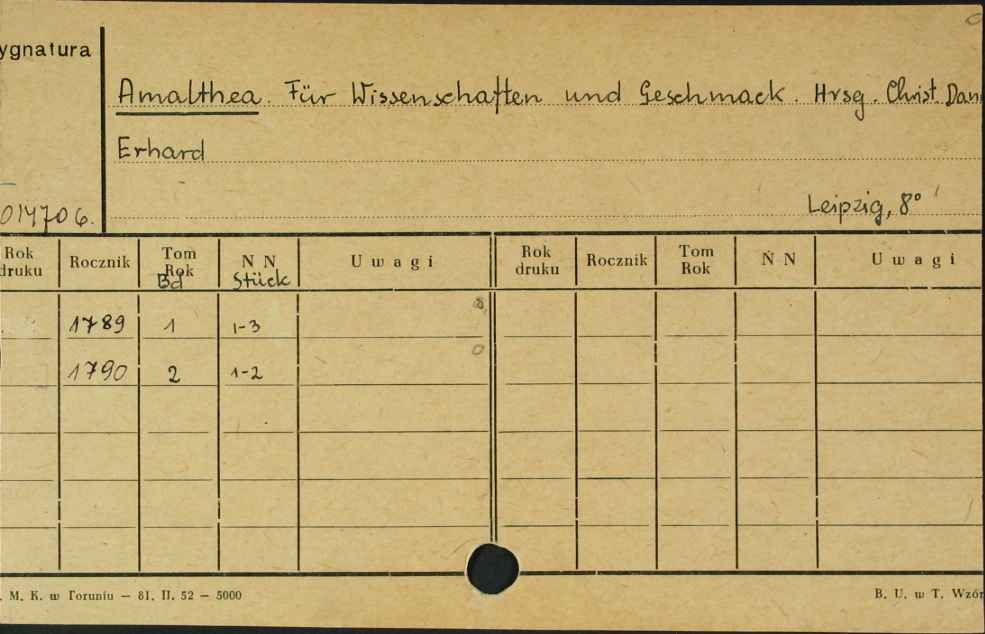 ygnatura
Amalthea. Für Wissenschaften und Geschmack. Hrsg. Christ. Dan
Erhard
014706.
Leipzig, 8°
Rok druku Rocznik Tom Rok Bd N N Stück Uwagi Rok druku Rocznik Tom Rok N N Uwagi
1789 1 1-3
1790 2 1-2
. M. K. w Toruniu — 81. II. 52 — 5000 B. U. w T. Wzór